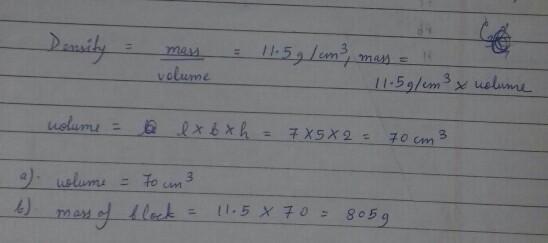 Density = mass/volume = 11.5g/cm³, mass =
11.5g/cm³ × volume
volume = l×b×h = 7×5×2 = 70 cm³
a). volume = 70 cm³
b). mass of block = 11.5 × 70 = 805g